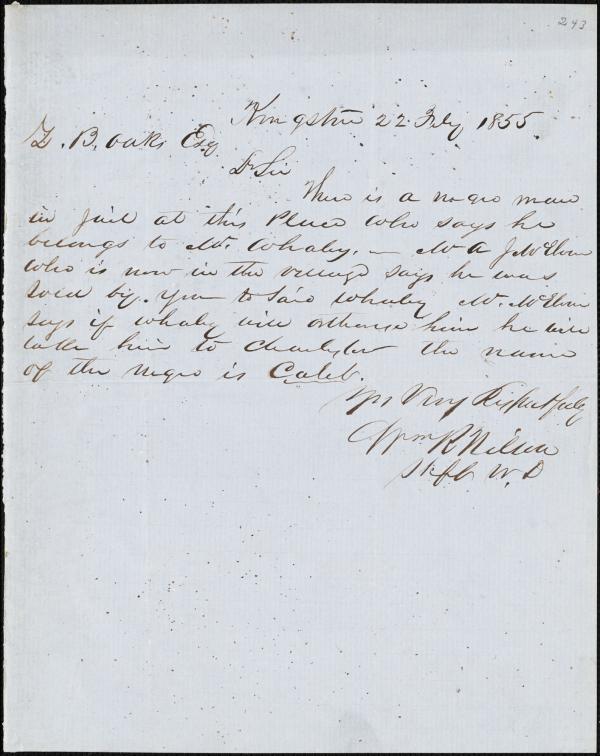 243
Kingstree 22 Feby 1855.
Z. B. Oaks Esq
Dr Sir
There is a negro man
in Jail at this Place who says he
belongs to Mr Whaley. — Mr A J McElveen
who is now in the village says he was
sold by. you to said Whaley Mr. McElveen
says if Whaley will otherise him he will
take him to Charleston the name
of the negro is Caleb.
Yrs Very Respectfully
Wm R Nelson
W. D